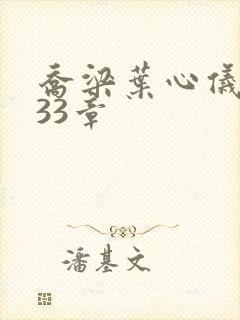 乔梁葉心儀
33章
潘基文